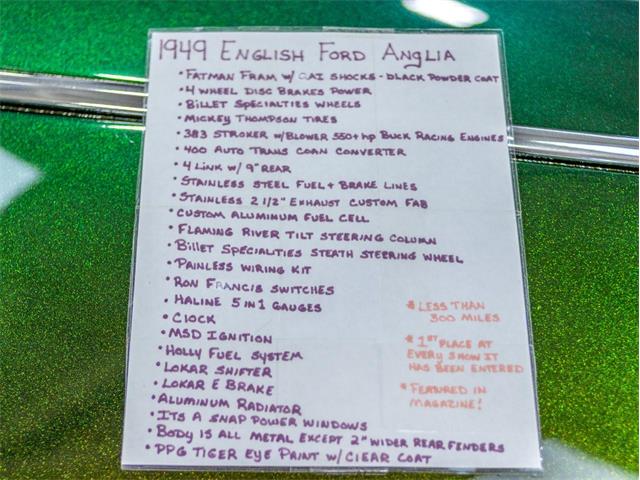 1949 ENGLISH FORD ANGLIA
• FATMAN FRAM W/ QAI SHOCKS - BLACK POWDER COAT
• 4 WHEEL DISC BRAKES POWER
• BILLET SPECIALTIES WHEELS
• MICKEY THOMPSON TIRES
• 383 STROKER W/BLOWER 550+hp BUCK RACING ENGINES
• 400 AUTO TRANS COAN CONVERTER
• 4 LINK W/ 9" REAR
• STAINLESS STEEL FUEL + BRAKE LINES
• STAINLESS 2 1/2" EXHAUST CUSTOM FAB
• CUSTOM ALUMINUM FUEL CELL
• FLAMING RIVER TILT STEERING COLUMN
• BILLET SPECIALTIES STEATH STEERING WHEEL
• PAINLESS WIRING KIT
• RON FRANCIS SWITCHES
• HALINE 5 IN 1 GAUGES
• CLOCK
• MSD IGNITION
• HOLLY FUEL SYSTEM
• LOKAR SHIFTER
• LOKAR E BRAKE
• ALUMINUM RADIATOR
• ITS A SNAP POWER WINDOWS
• BODY IS ALL METAL EXCEPT 2" WIDER REAR FENDERS
• PPG TIGER EYE PAINT W/ CLEAR COAT
* LESS THAN
300 MILES
* 1ST PLACE AT
EVERY SHOW IT
HAS BEEN ENTERED
* FEATURED IN
MAGAZINE!